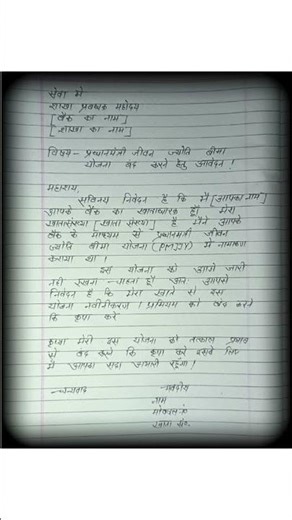 सेवा मे
शाखा प्रबन्धक महोदय
[बैंक का नाम]
[शाखा का नाम]
विषय- प्रधानमंत्री जीवन ज्योति बीमा
योजना बंद करने हेतु आवेदन।
महाशय,
सविनय निवेदन है कि मैं [आपका नाम]
आपके बैंक का खाताधारक हूँ। मेरा
खातासंख्या [खाता संख्या] है मैंने आपके
बैंक के माध्यम से प्रधानमंत्री जीवन
ज्योति बीमा योजना (PMJJY) में नामांकन
कराया था।
इस योजना को आगे जारी
नही रखना चाहता हूँ अतः आपसे
निवेदन है कि मेरा खाते से इस
योजना नवीनीकरण। प्रीमियम को बंद करने
कि कृपा करे
कृपया मेरी इस योजना को तत्काल प्रभाव
से बंद करने कि कृपा करे इसके लिए
मैं आपका सदा आभारी रहूँगा।
धन्यवाद
भवदीय
नाम
मोबाइल नं
खाता सं०.